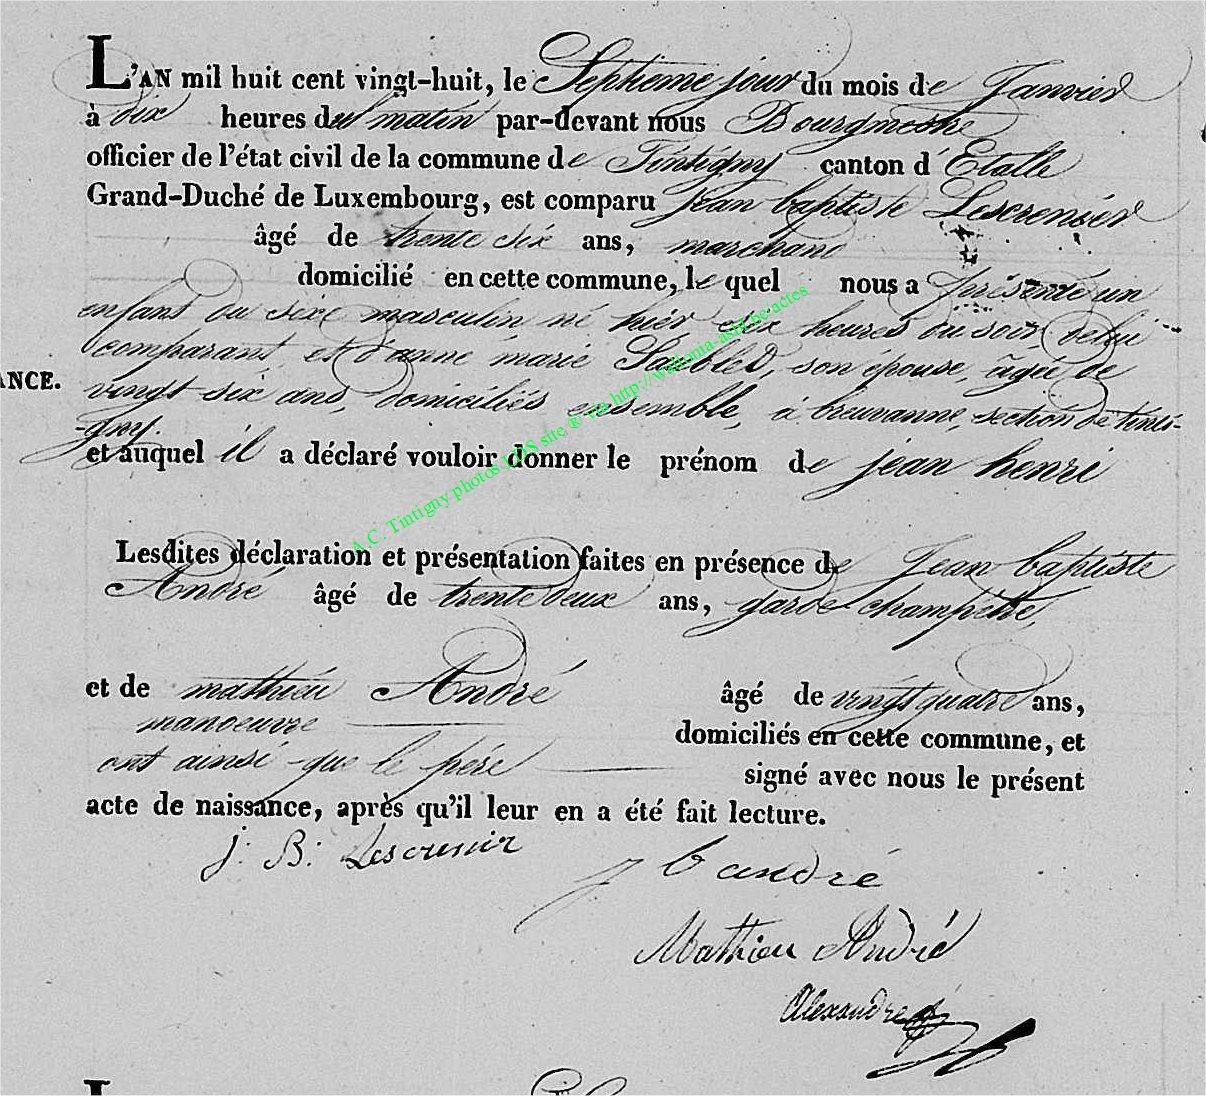 L'AN mil huit cent vingt-huit, le Septieme jour du mois de Janvier
à dix heures du matin par-devant nous Bourgmestre
officier de l'état civil de la commune de Tintigny canton d'Etalle
Grand-Duché de Luxembourg, est comparu Jean baptiste Lescrenier
âgé de trente six ans, marchand
domicilié en cette commune, le quel nous a présenté un
enfant du sexe masculin né hier, heures du soir de lui
comparant et d'anne marie son épouse, âgée de
ANCE.
vingt six ans, domiciliés ensemble, à breuvanne, section de tinti-
-gny.
et auquel il a déclaré vouloir donner le prénom de jean henri
A.C. Tintigny photos LDS site ® via http://wallonia-asbl.be/actes
Lesdites déclaration et présentation faites en présence de Jean baptiste
André âgé de trente deux ans, garde champêtre,
et de mathieu André âgé de vingt quatre ans,
manoeuvre domiciliés en cette commune, et
ont ainsi que le père signé avec nous le présent
acte de naissance, après qu'il leur en a été fait lecture.
J: B: Lescrenier
j b andré
Mathieu André
Alexandre